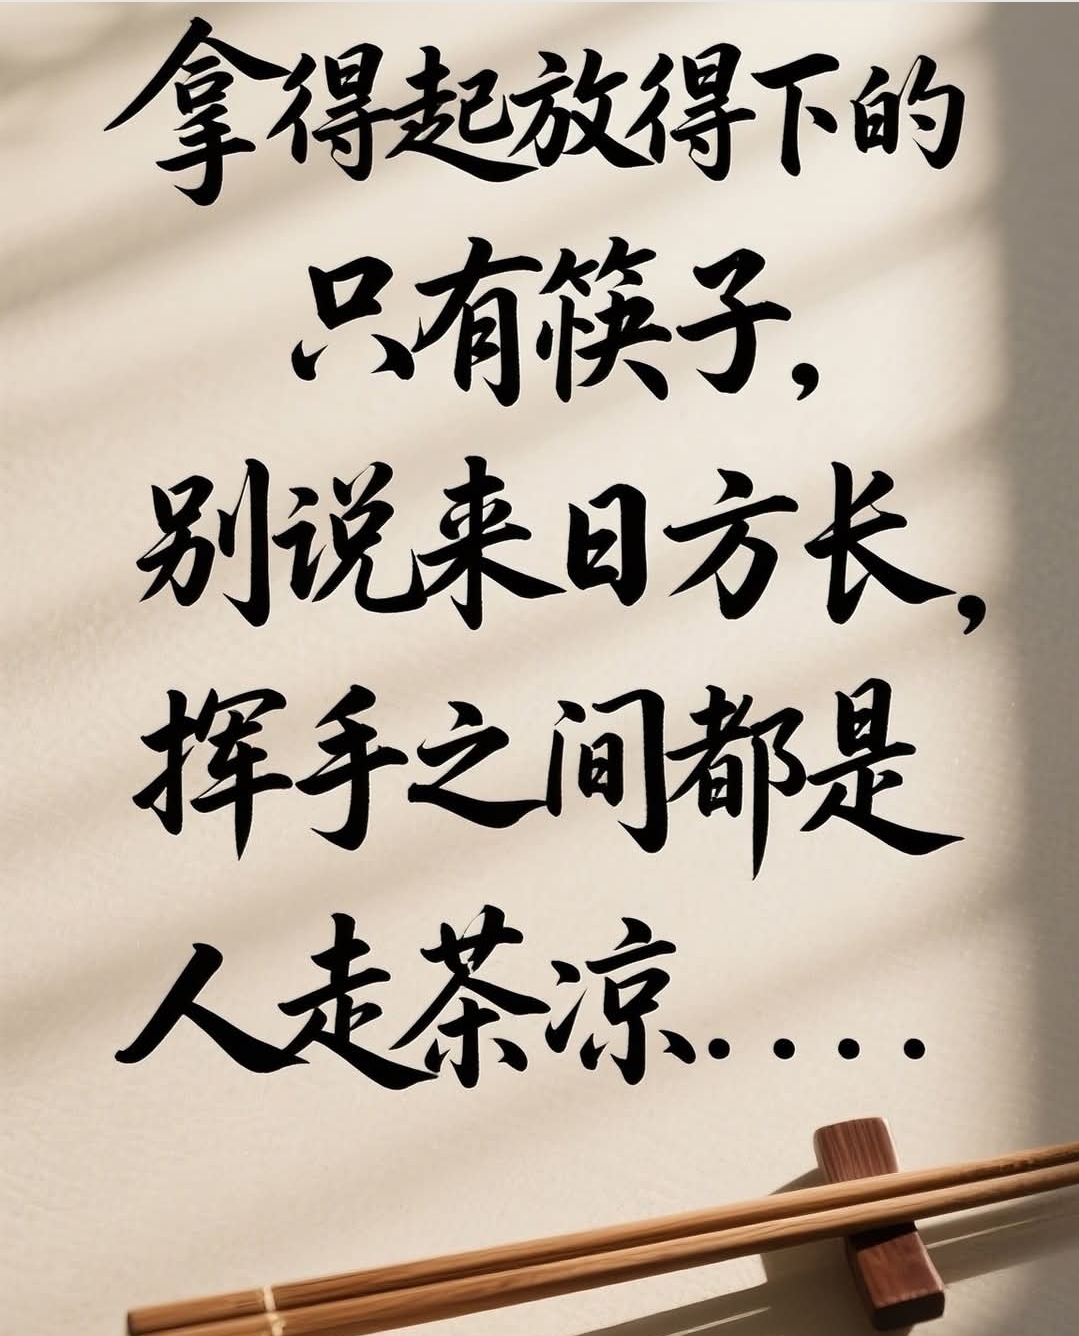 拿得起放得下的
只有筷子，
别说来日方长，
挥手之间都是
人走茶凉....